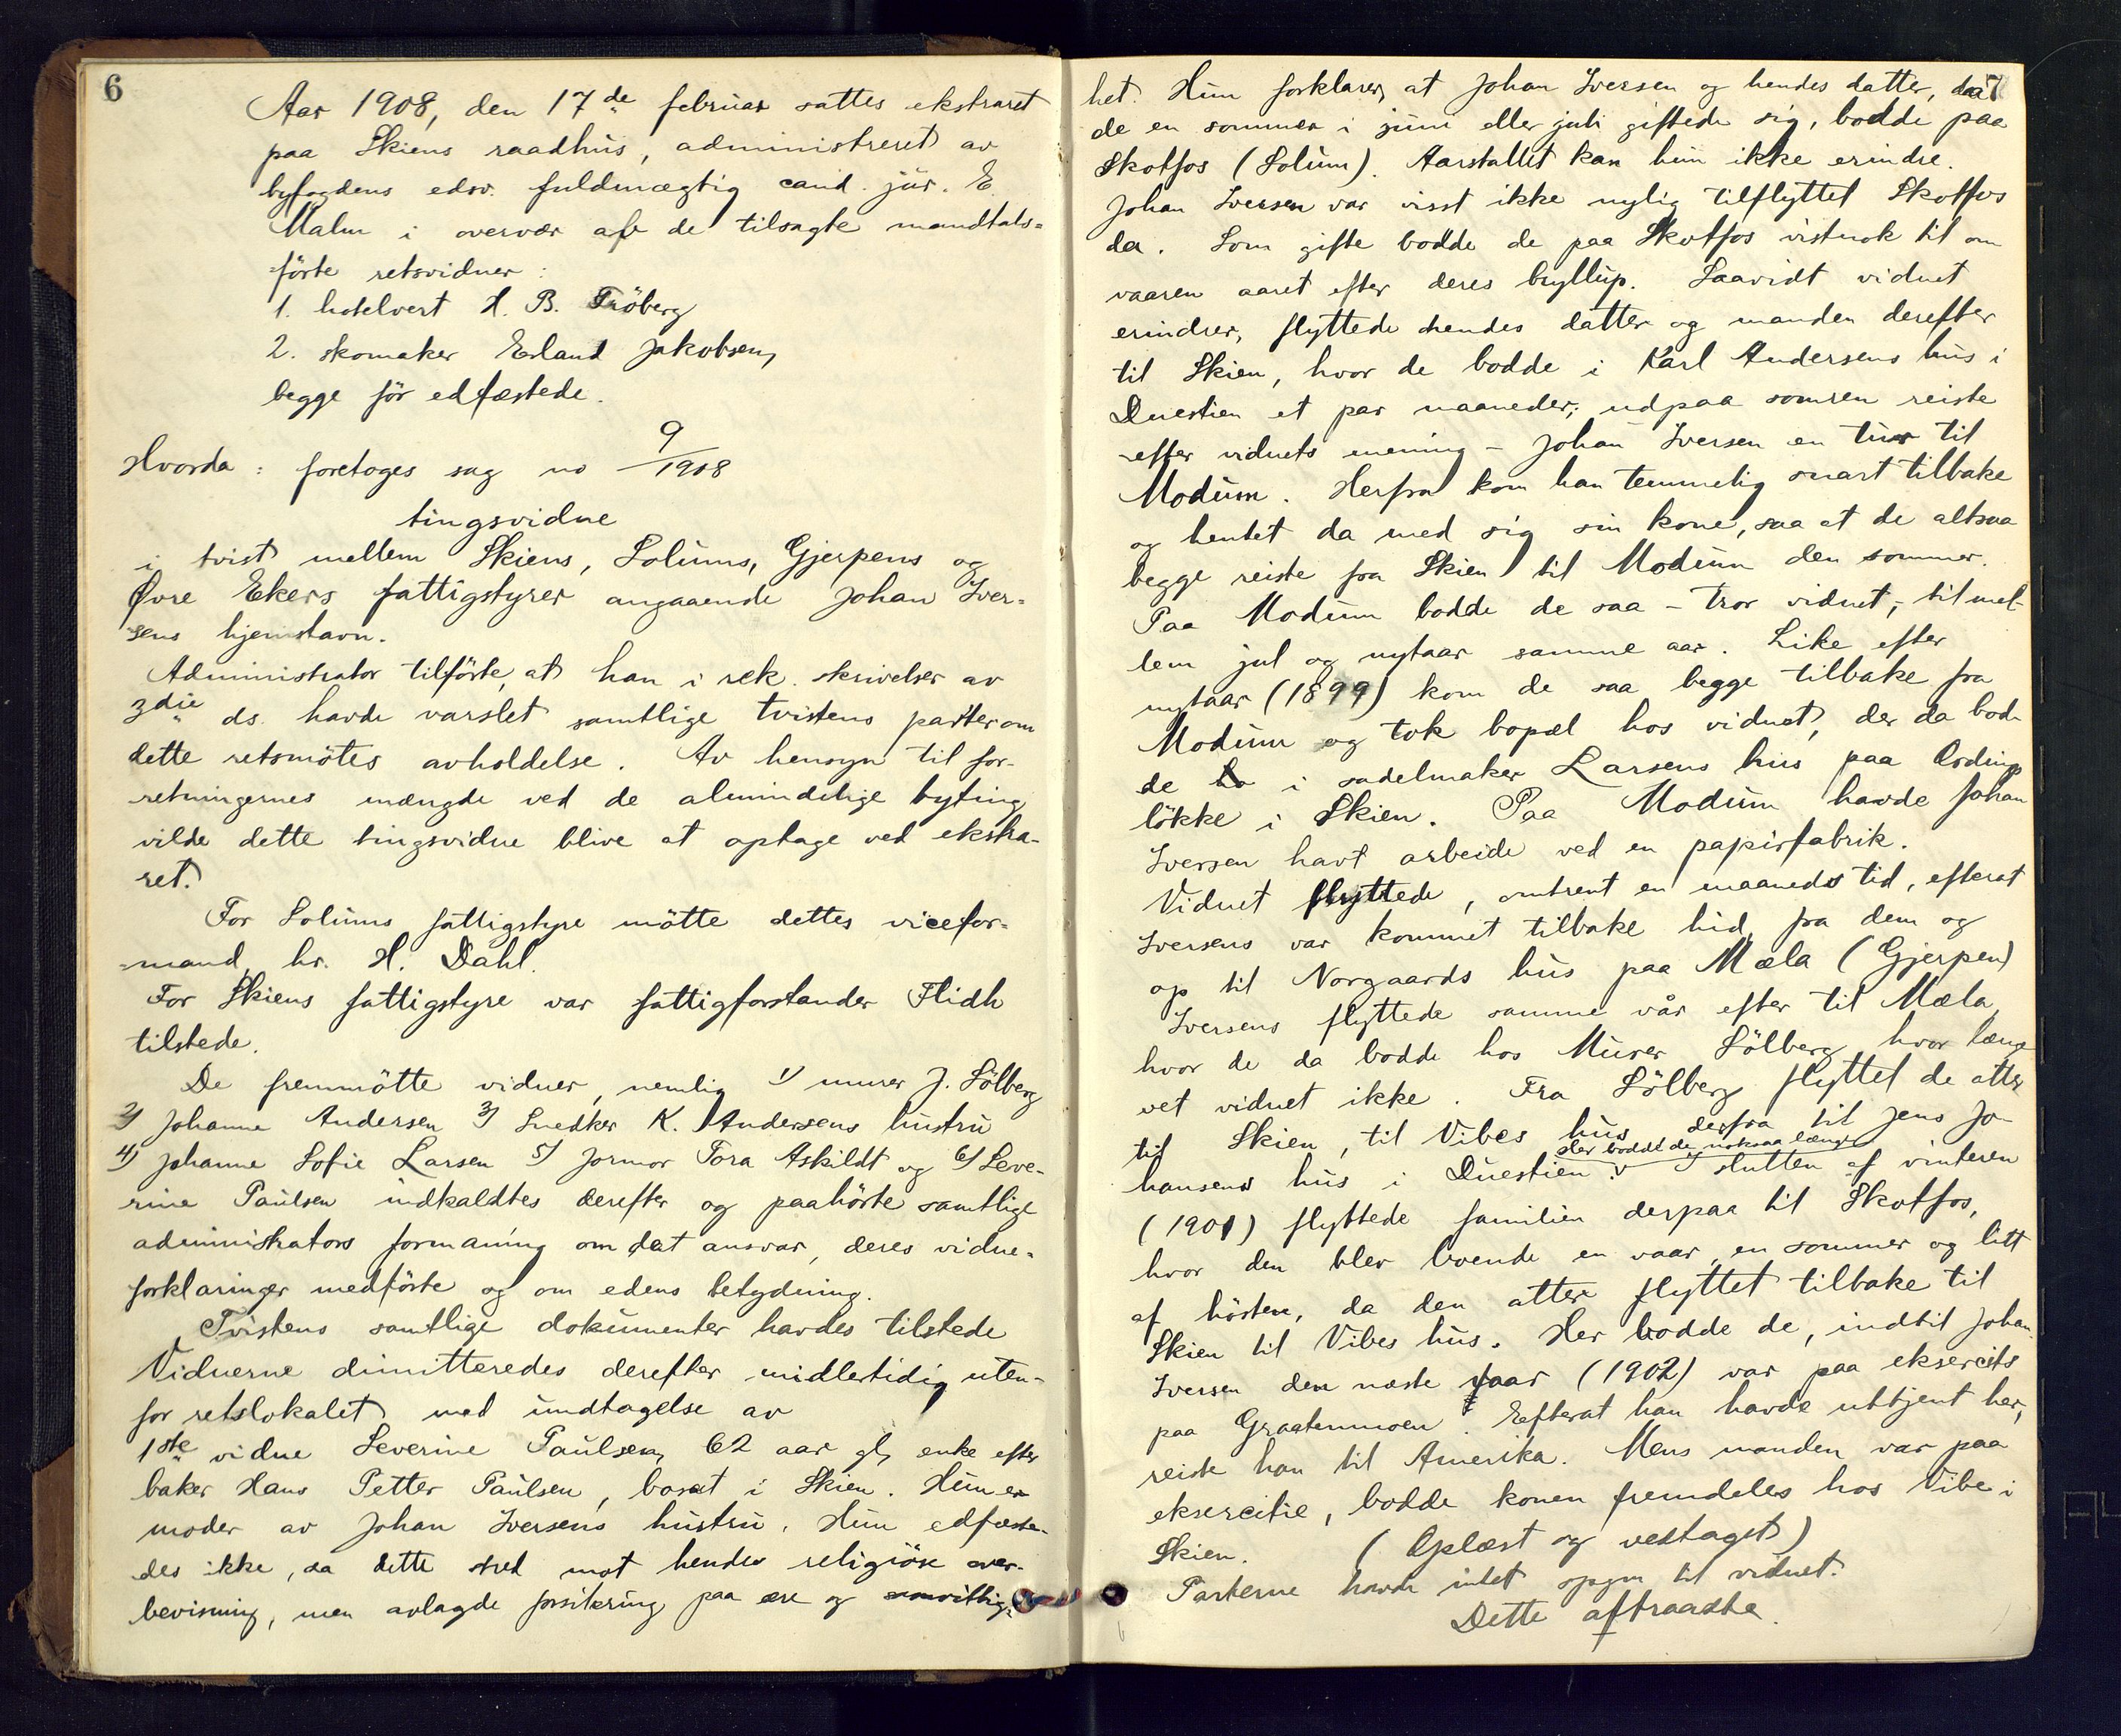 6
Aar 1908, den 17de februar sattes ekstraret
paa Skiens raadhus, administreret av
byfogdens edsv. fuldmægtig cand. jur. E.
Malm i overvær af de tilsagte mandtals-
förte retsvidner:
1. hotelvert H. B. Fröberg
2. skomaker Erland Jakobsen,
begge för edfæstede.
Hvorda: foretoges sag no 9/1908
tingsvidne
i tvist mellem Skiens, Solums, Gjerpens og
Øvre Ekers fattigstyrer angaaende Johan Iver-
sens hjemstavn.
Administrator tilförte, at han i rek. skrivelser av
3die ds. havde varslet samtlige tvistens parter om
dette retsmötes avholdelse. Av hensyn til for-
retningernes mængde ved de almindelige byting
vilde dette tingsvidne blive at optage ved ekstra-
ret.
For Solums fattigstyre mötte dettes vicefor-
mand, hr. H. Dahl.
For Skiens fattigstyre var fattigforstander Flidh
tilstede.
De fremmötte vidner, nemlig 1) murer J. Sölberg
2) Johanne Andersen 3) Snedker K. Andersens hustru
4) Johanne Sofie Larsen 5) Jormor Tora Askildt og 6) Seve-
rine Paulsen indkaldtes derefter og paahörte samtlige
administrators formaning om det ansvar, deres vidne-
forklaringer medförte og om edens betydning.
Tvistens samtlige dokumenter havdes tilstede
Vidnerne dimitteredes derefter midlertidig uten-
for retslokalet med undtagelse av
1ste vidne Severine Paulsen, 62 aar gl, enke efter
baker Hans Petter Paulsen, bosat i Skien. Hun er
moder av Johan Iversens hustru. Hun edfæste-
des ikke, da dette stred mot hendes religiöse over-
bevisning, men avlagde forsikring paa ære og samvittig-
7
het. Hun forklarer, at Johan Iversen og hendes datter, da
de en sommer i juni eller juli giftede sig, bodde paa
Skotfos (Solum). Aarstallet kan hun ikke erindre.
Johan Iversen var visst ikke nylig tilflyttet Skotfos
da. Som gifte bodde de paa Skotfos vistnok til om
vaaren aaret efter deres bryllup. Saavidt vidnet
erindrer, flyttede hendes datter og manden derefter
til Skien, hvor de bodde i Karl Andersens hus i
Duestien et par maaneder; udpaa somren reiste
- efter vidnets mening - Johan Iversen en tur til
Modum. Herfra kom han temmelig snart tilbake
og hentet da med sig sin kone, saa at de altsaa
begge reiste fra Skien til Modum den sommer.
Paa Modum bodde de saa - tror vidnet, - til mel-
lem jul og nytaar samme aar. Like efter
nytaar (1899) kom de saa begge tilbake fra
Modum og tok bopæl hos vidnet, der da bod-
de i sadelmaker Larsens hus paa Ordrup
lökke i Skien. Paa Modum havde Johan
Iversen havt arbeide ved en papirfabrik.
Vidnet flyttede, omtrent en maaneds tid, efterat
Iversens var kommet tilbake hid, fra dem og
op til Norgaards hus paa Mæla (Gjerpen)
Iversens flyttede samme vår efter til Mæla,
hvor de da bodde hos Murer Sölberg, hvor længe
vet vidnet ikke. Fra Sölberg flyttet de atter
til Skien, til Vibes hus, derfra til Jens Jo-
Her bodde de noksaa længe
hansens hus i Duestien. I slutten af vinteren
(1901) flyttede familien derpaa til Skotfos,
hvor den blev boende en vaar, en sommer og litt
af hösten, da den atter flyttet tilbake til
Skien til Vibes hus. Her bodde de, indtil Johan
Iversen den næste vaar (1902) var paa eksercits
paa Graatenmoen. Efterat han havde uttjent her,
reiste han til Amerika. Mens manden var paa
eksercitie, bodde konen fremdeles hos Vibe i
Skien. (Oplæst og vedtaget)
Parterne havde intet spgm til vidnet.
Dette aftraadte.